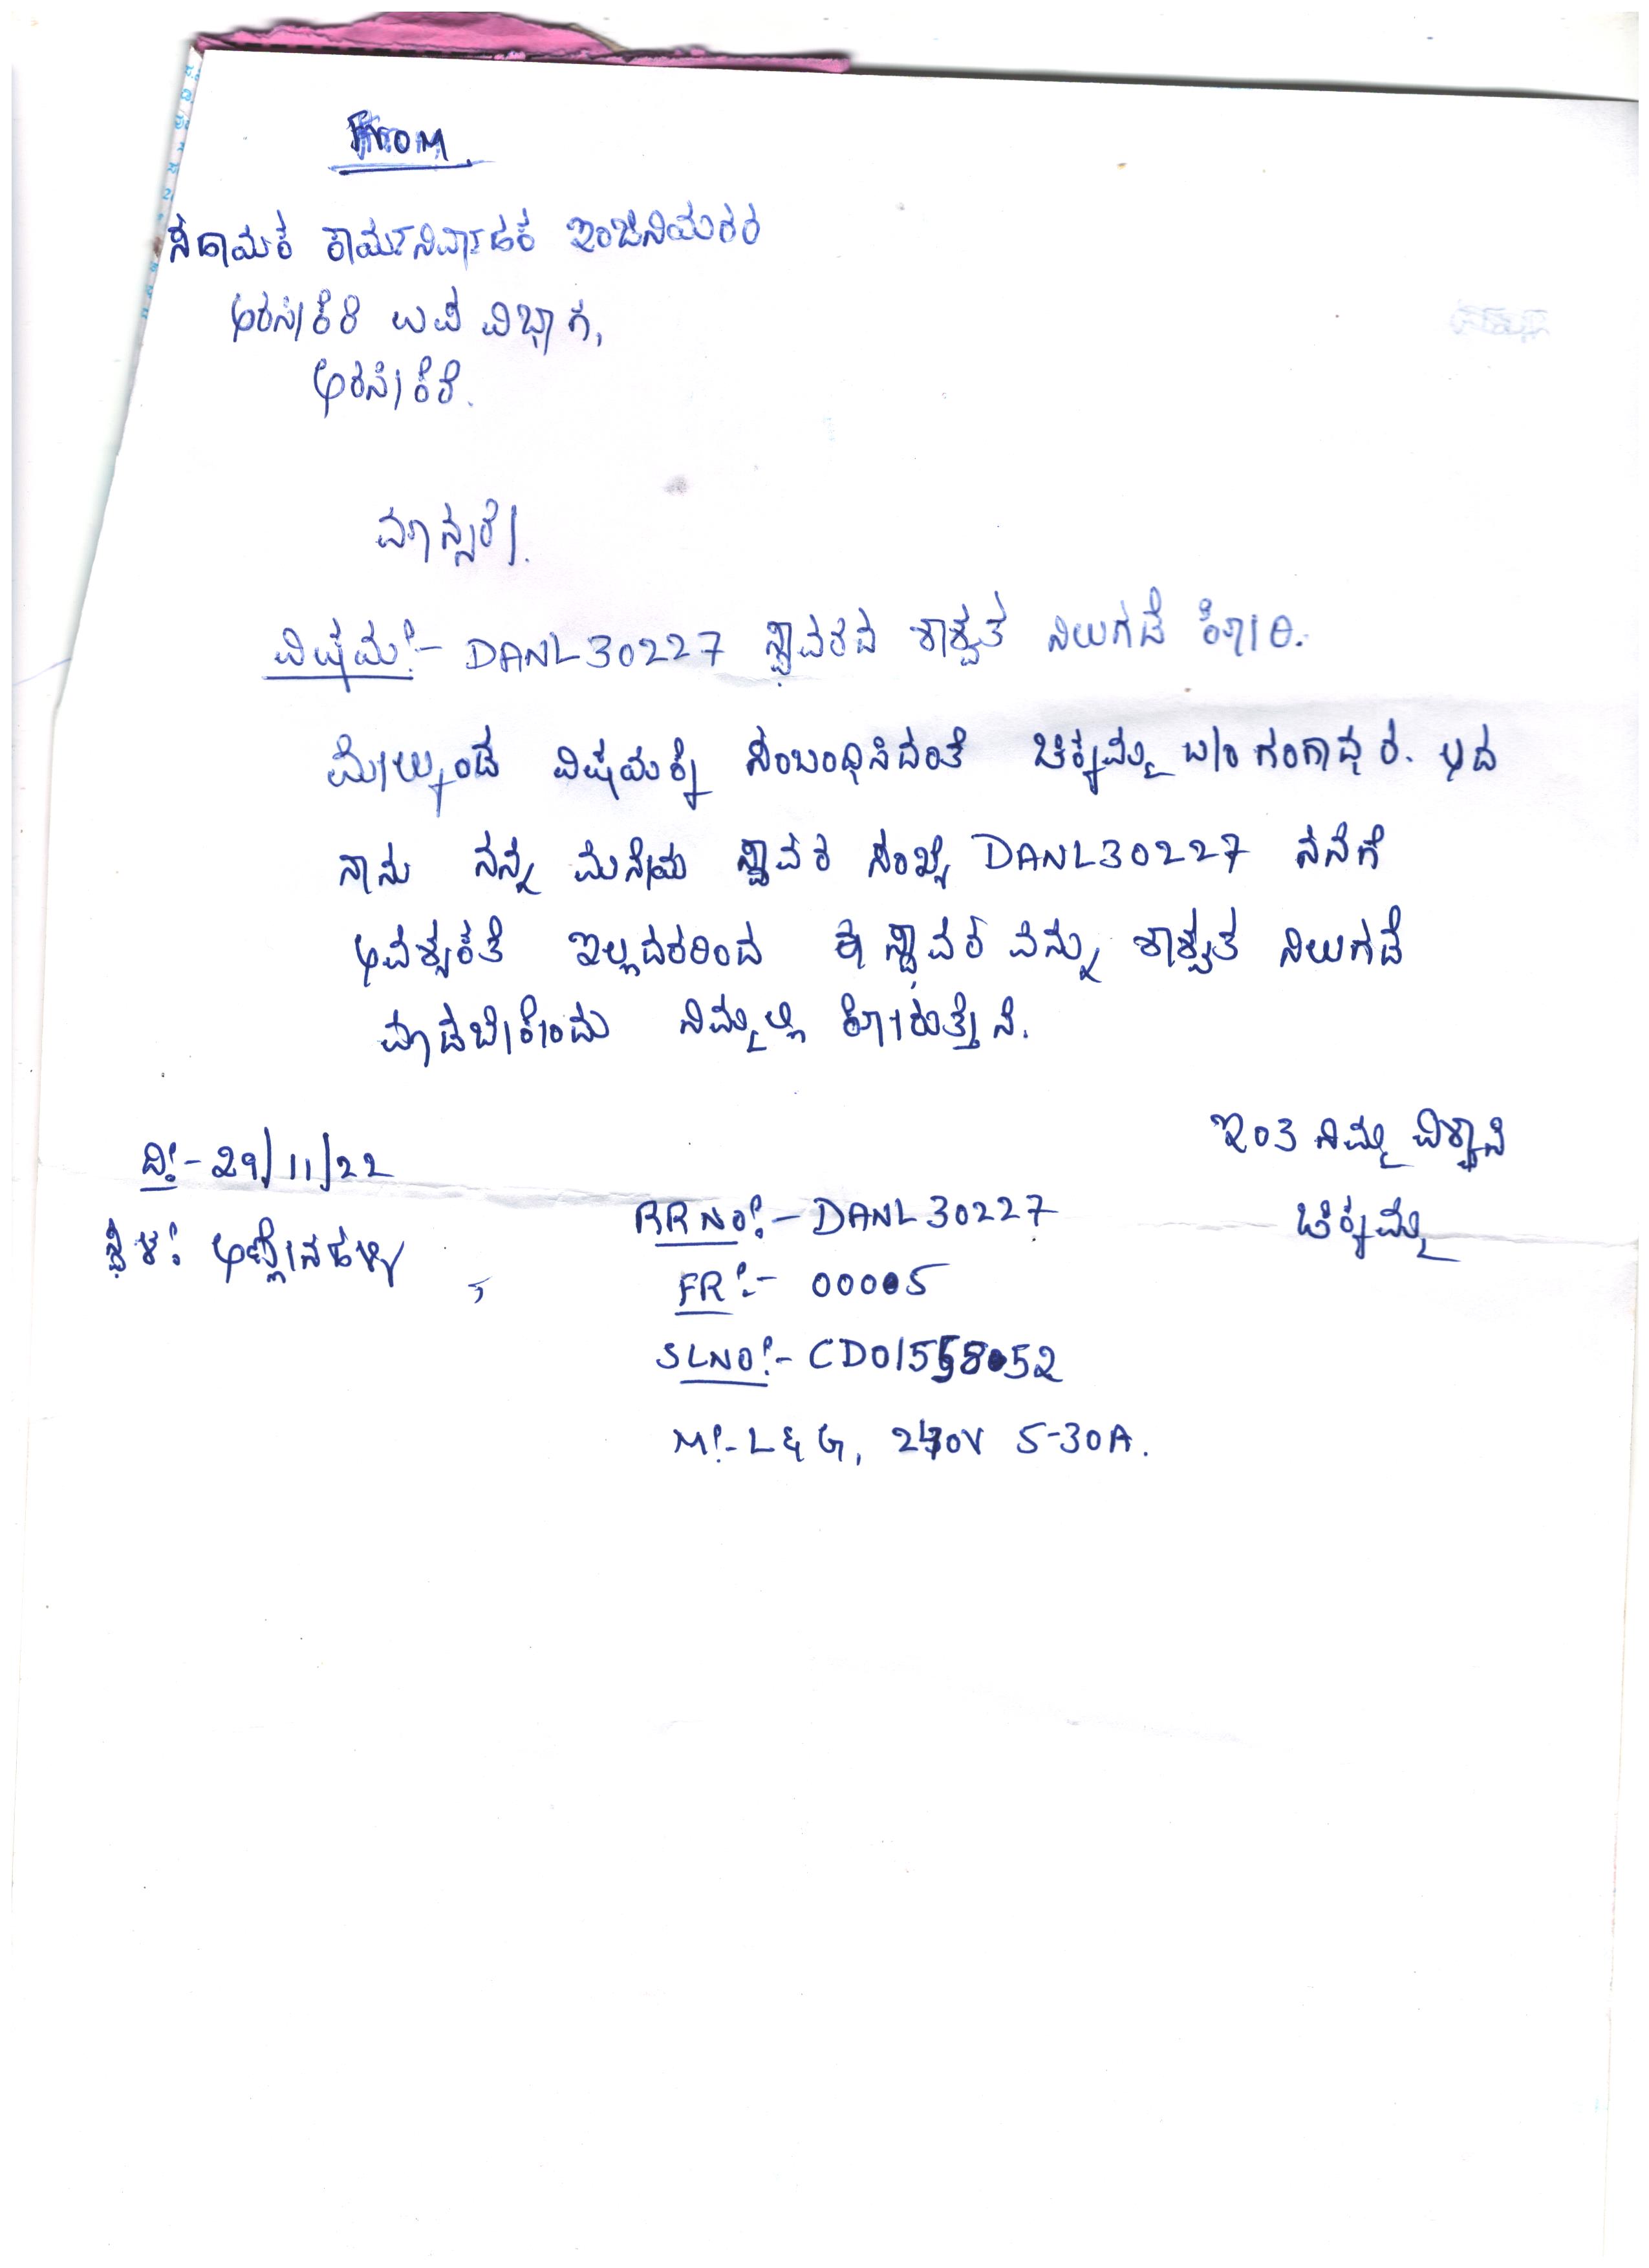 FROM
ಸಹಾಯಕ ಕಾರ್ಯನಿರ್ವಾಹಕ ಇಂಜಿನಿಯರರ
ಅರಸೀಕೆರೆ ಉಪ ವಿಭಾಗ,
ಅರಸೀಕೆರೆ.
ಮಾನ್ಯರೆ,
ವಿಷಯ:- DANL30227 ಸ್ಥಾವರದ ಶಾಶ್ವತ ನಿಲುಗಡೆ ಕೋರಿ.
ಮೇಲ್ಕಂಡ ವಿಷಯಕ್ಕೆ ಸಂಬಂಧಿಸಿದಂತೆ ಚಿಕ್ಕಮ್ಮ ಗಂಗಾಧರ. ಆದ
ನಾನು ನನ್ನ ಮನೆಯ ಸ್ಥಾವರ ಸಂಖ್ಯೆ DANL30227 ನನಗೆ
ಅವಶ್ಯಕತೆ ಇಲ್ಲದಕರಿಂದ ಈ ಸ್ಥಾವರ ವನ್ನು ಶಾಶ್ವತ ನಿಲುಗಡೆ
ಮಾಡಬೇಕೆಂದು ನಿಮ್ಮಲ್ಲಿ ಕೋರುತ್ತೇನೆ.
ಇಂತಿ ನಿಮ್ಮ ವಿಶ್ವಾಸಿ
ಚಿಕ್ಕಮ್ಮ
ದಿ:- 29/11/22
ಸ್ಥಳ:
RRNO:- DANL30227
FR:- 00005
SLNO:-
M:- L&G, 240V 5-30A.